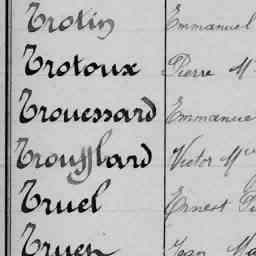 Trotin Emmanuel
Trotoux Pierre M
Trouessard Emmanue
Troufflard Victor M
Truel Ernest
Truen Jean Ma